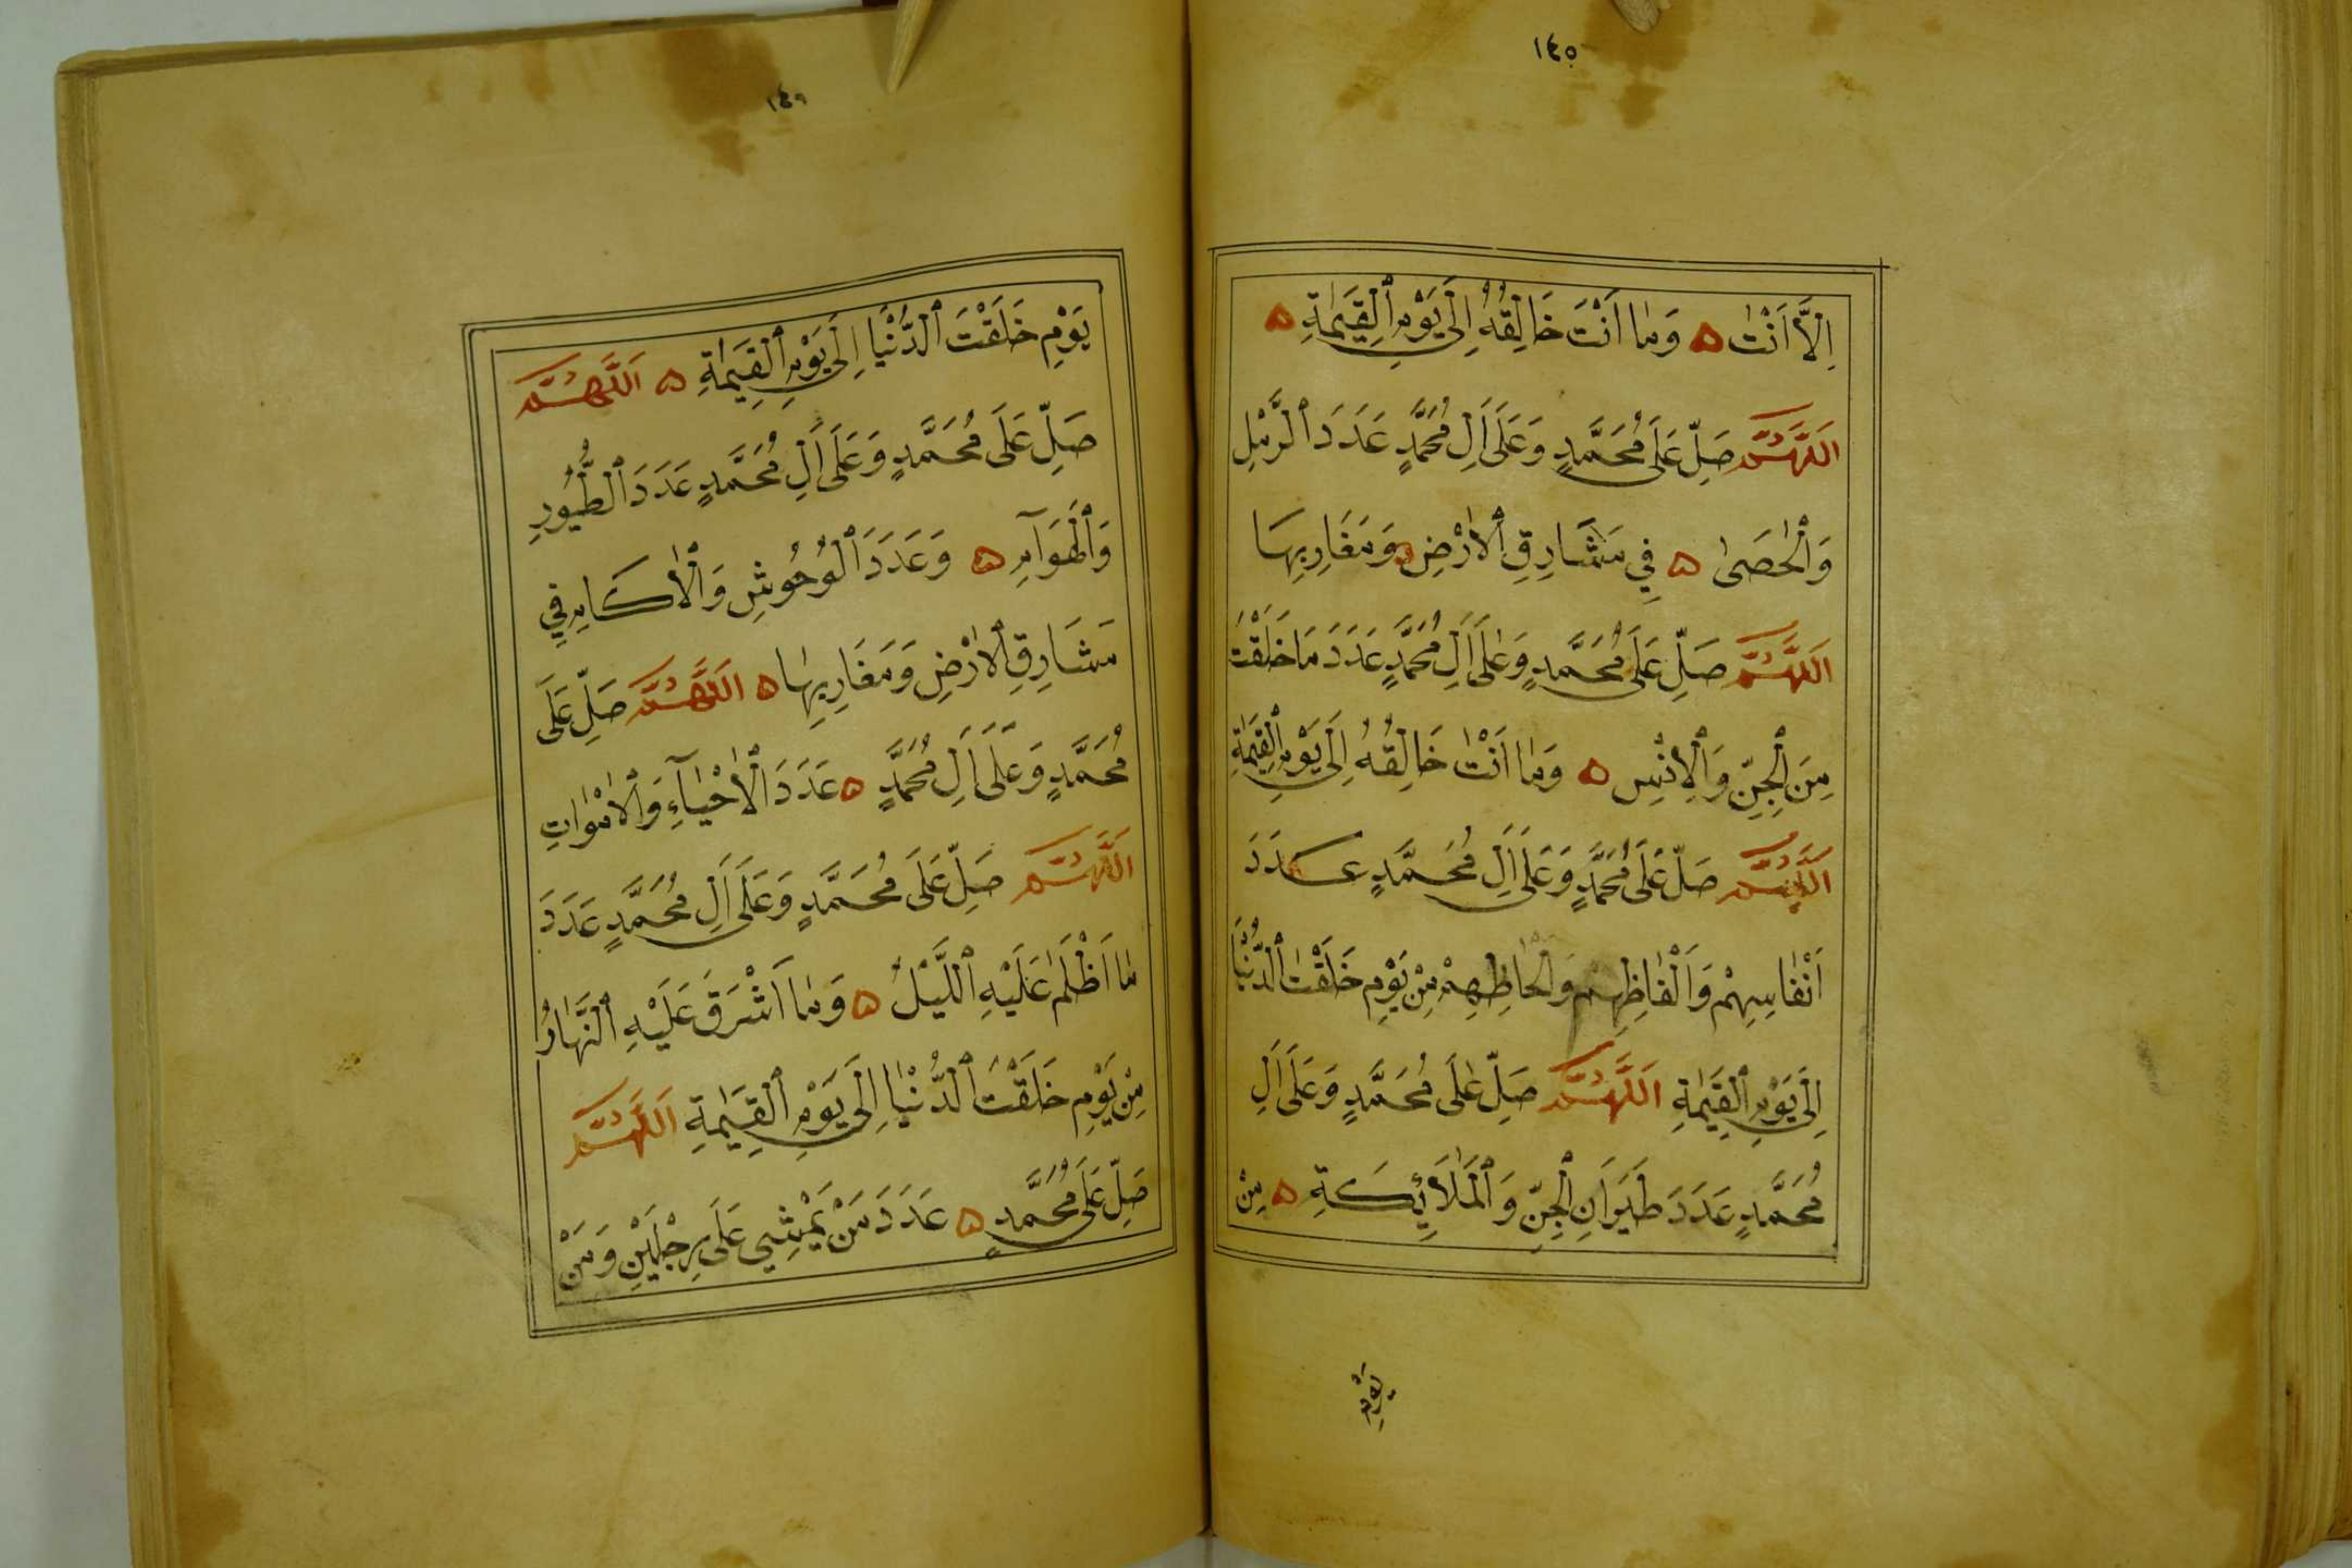 ١٤٥
اِلَّا اَنْتَ ۞ وَمَا اَنْتَ خَالِقُهُ اِلَى يَوْمِ ٱلْقِيٰمَةِ ۞
اَللّٰهُمَّ صَلِّ عَلَى مُحَمَّدٍ وَعَلَى اٰلِ مُحَمَّدٍ عَدَدَ ٱلرَّمْلِ
وَٱلْحَصَى ۞ فِي مَشَارِقِ ٱلْاَرْضِ وَمَغَارِبِهَا
اَللّٰهُمَّ صَلِّ عَلَى مُحَمَّدٍ وَعَلَى اٰلِ مُحَمَّدٍ عَدَدَ مَا خَلَقْتَ
مِنَ ٱلْجِنِّ وَٱلْاِنْسِ ۞ وَمَا اَنْتَ خَالِقُهُ اِلَى يَوْمِ ٱلْقِيٰمَةِ
اَللّٰهُمَّ صَلِّ عَلَى مُحَمَّدٍ وَعَلَى اٰلِ مُحَمَّدٍ عَدَدَ
اَنْفَاسِهِمْ وَاَلْفَاظِهِمْ وَاَلْحَاظِهِمْ مِنْ يَوْمِ خَلَقْتَ ٱلدُّنْيَا
اِلَى يَوْمِ ٱلْقِيٰمَةِ اَللّٰهُمَّ صَلِّ عَلَى مُحَمَّدٍ وَعَلَى اٰلِ
مُحَمَّدٍ عَدَدَ طَيَرَانِ ٱلْجِنِّ وَٱلْمَلَائِكَةِ ۞ مِنْ
يَوْمِ
١٤٦
يَوْمِ خَلَقْتَ ٱلدُّنْيَا اِلَى يَوْمِ ٱلْقِيٰمَةِ ۞ اَللّٰهُمَّ
صَلِّ عَلَى مُحَمَّدٍ وَعَلَى اٰلِ مُحَمَّدٍ عَدَدَ ٱلطُّيُورِ
وَٱلْهَوَآمِ ۞ وَعَدَدَ ٱلْوُحُوشِ وَٱلْاٰكَامِ فِي
مَشَارِقِ ٱلْاَرْضِ وَمَغَارِبِهَا ۞ اَللّٰهُمَّ صَلِّ عَلَى
مُحَمَّدٍ وَعَلَى اٰلِ مُحَمَّدٍ ۞ عَدَدَ ٱلْاَحْيَآءِ وَٱلْاَمْوَاتِ
اَللّٰهُمَّ صَلِّ عَلَى مُحَمَّدٍ وَعَلَى اٰلِ مُحَمَّدٍ عَدَدَ
مَا اَظْلَمَ عَلَيْهِ ٱللَّيْلُ ۞ وَمَا اَشْرَقَ عَلَيْهِ ٱلنَّهَارُ
مِنْ يَوْمِ خَلَقْتَ ٱلدُّنْيَا اِلَى يَوْمِ ٱلْقِيٰمَةِ اَللّٰهُمَّ
صَلِّ عَلَى مُحَمَّدٍ ۞ عَدَدَ مَنْ يَمْشِي عَلَى رِجْلَيْنِ وَمَنْ